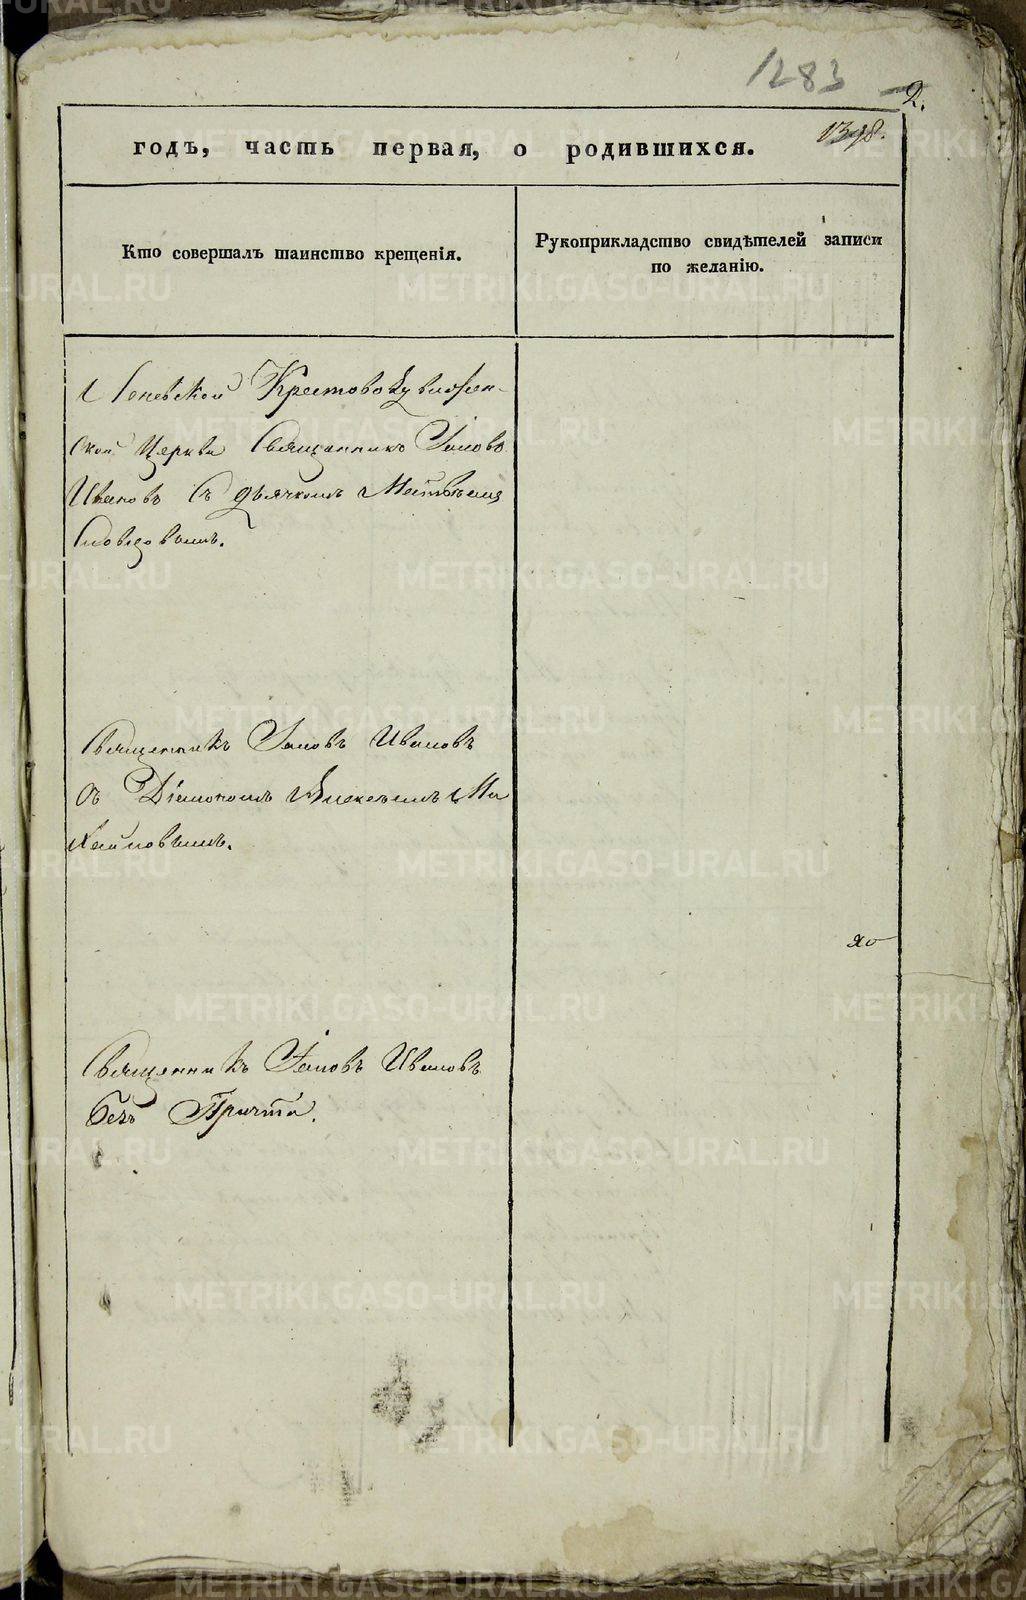 1283
2.
годъ, часть первая, о родившихся.
Кто совершалъ таинство крещенія.
Рукоприкладство свидѣтелей записи
по желанію.
Крестовоздвижен-
ской Церкви Священникъ Іаковъ
Ивановъ Съ дьячкомъ
Священникъ Іаковъ Ивановъ
съ Діакономъ Алексѣемъ Ми
хайловымъ.
Священникъ Іаковъ Ивановъ
безъ Причта.
METRIKI.GASO-URAL.RU